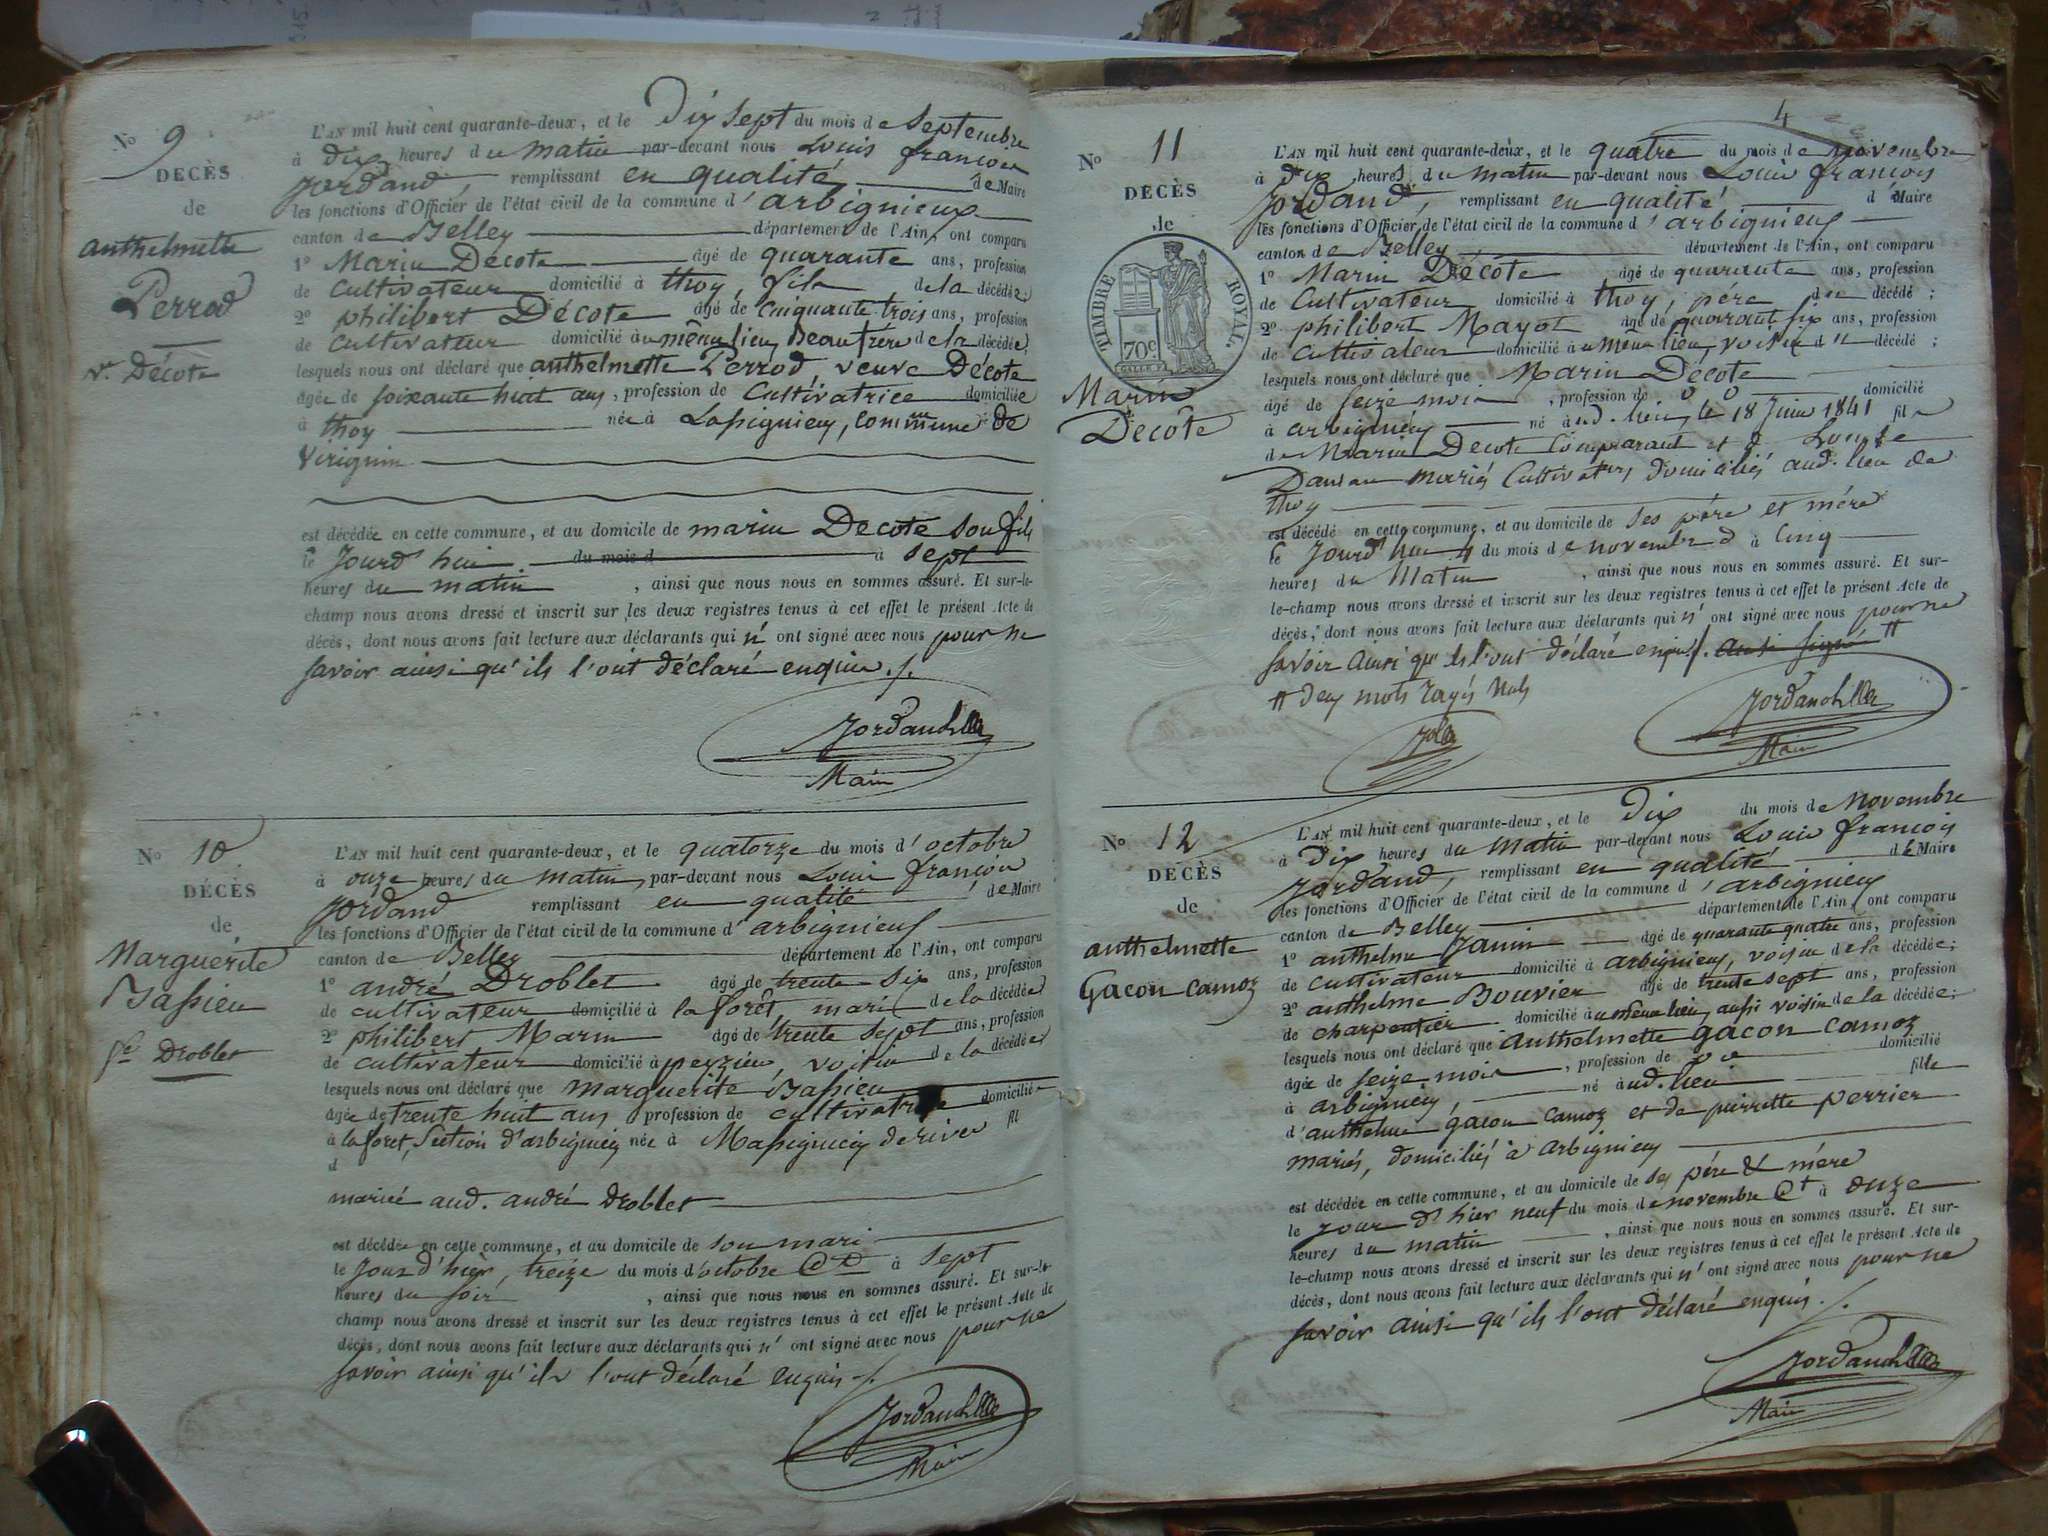 N° 9
DECÈS
de
anthelmette
Perrod
Ve. Décote
L'AN mil huit cent quarante-deux, et le Dix sept du mois de Septembre
à Dix heures du matin par-devant nous Louis françois
Jordand, remplissant en qualité de Maire
les fonctions d'Officier de l'état civil de la commune d'arbignieux
canton de Belley département de l'Ain, ont comparu
1° Marin Décote âgé de quarante ans, profession
de Cultivateur domicilié à thoy, fils de la décédée;
2° philibert Décote âgé de Cinquante trois ans, profession
de Cultivateur domicilié au même lieu, beaufrère de la décédée,
lesquels nous ont déclaré que anthelmette Perrod, veuve Décote
âgée de soixante huit ans, profession de Cultivatrice domiciliée
à thoy née à Lassignieu, Commune de
Virignin
est décédée en cette commune, et au domicile de marin Décote son fils
le Jourd'hui du mois d à sept
heures du matin, ainsi que nous nous en sommes assuré. Et sur-le-
champ nous avons dressé et inscrit sur les deux registres tenus à cet effet le présent Acte de
décès, dont nous avons fait lecture aux déclarants qui n'ont signé avec nous pour ne
savoir ainsi qu'ils l'ont déclaré enquis ./.
Jordand
Maire
N° 10
DÉCÈS
de
Marguerite
Bassieu
fe Droblet
L'AN mil huit cent quarante-deux, et le quatorze du mois d'octobre
à onze heures du matin, par-devant nous Louis françois
Jordand remplissant en qualité de Maire
les fonctions d'Officier de l'état civil de la commune d'arbignieux
canton de Belley département de l'Ain, ont comparu
1° andré Droblet âgé de trente six ans, profession
de cultivateur domicilié à la forêt, mari de la décédée
2° philibert Marin âgé de trente sept ans, profession
de cultivateur domicilié à peyzieu, voisin de la décédée
lesquels nous ont déclaré que Marguerite Bassieu
âgée de trente huit ans profession de cultivatrice domiciliée
à la foret, Section d'arbignieu née à Massignieu de rives fil
d
mariée aud. andré Droblet
est décédée en cette commune, et au domicile de son mari
le Jour d'hier, treize du mois d'octobre Ct à sept
heures du soir, ainsi que nous nous en sommes assuré. Et sur-le-
champ nous avons dressé et inscrit sur les deux registres tenus à cet effet le présent Acte de
décès, dont nous avons fait lecture aux déclarants qui n'ont signé avec nous pour ne
savoir ainsi qu'ils l'ont déclaré enquis ./.
Jordand
Maire
4
N° 11
DÉCÈS
de
TIMBRE ROYAL.
70c
Marin
Décote
L'AN mil huit cent quarante-deux, et le quatre du mois de novembre
à dix heures du matin par-devant nous Louis françois
Jordand, remplissant en qualité d Maire
les fonctions d'Officier de l'état civil de la commune d'arbignieux
canton de Belley département de l'Ain, ont comparu
1° Marin Décote âgé de quarante ans, profession
de Cultivateur domicilié à thoy, père du décédé;
2° philibert Mayot âgé de quarant six ans, profession
de Cultivateur domicilié au même lieu, voisin du décédé;
lesquels nous ont déclaré que Marin Décote
âgé de seize mois, profession de domicilié
à arbignieu né aud. lieu, le 18 Juin 1841 fils
de Marin Décote Comparant et de Louise
mariés Cultivatrs domiciliés aud. lieu de
thoy
est décédé en cette commune, et au domicile de ses père et mère
le Jourd'hui 4 du mois de novembre à Cinq
heures du Matin, ainsi que nous nous en sommes assuré. Et sur-
le-champ nous avons dressé et inscrit sur les deux registres tenus à cet effet le présent Acte de
décès, dont nous avons fait lecture aux déclarants qui n'ont signé avec nous pour ne
savoir ainsi qu'ils l'ont déclaré enquis ./. ainsi signé
deux mots rayés nuls
Jordand
Maire
N° 12
DÉCÈS
de
anthelmette
Gacon Camoz
L'AN mil huit cent quarante-deux, et le Dix du mois de Novembre
à Dix heures du Matin par-devant nous Louis françois
Jordand, remplissant en qualité de Maire
les fonctions d'Officier de l'état civil de la commune d'arbignieu
canton de Belley département de l'Ain, ont comparu
1° anthelme Janin âgé de quarante quatre ans, profession
de cultivateur domicilié à arbignieu, voisin de la décédée;
2° anthelme Bouvier âgé de trente sept ans, profession
de charpentier domicilié au même lieu, aussi voisin de la décédée;
lesquels nous ont déclaré que Anthelmette gacon camoz
âgée de seize mois, profession de domicilié
à arbignieu, né aud. lieu fille
d'anthelme gacon camoz et de pierrette perrier
mariés, domiciliés à arbignieu
est décédée en cette commune, et au domicile de ses père & mère
le jour d'hier neuf du mois de novembre Ct à onze
heures du matin, ainsi que nous nous en sommes assuré. Et sur-
le-champ nous avons dressé et inscrit sur les deux registres tenus à cet effet le présent Acte de
décès, dont nous avons fait lecture aux déclarants qui n'ont signé avec nous pour ne
savoir ainsi qu'ils l'ont déclaré enquis ./.
Jordand
Maire